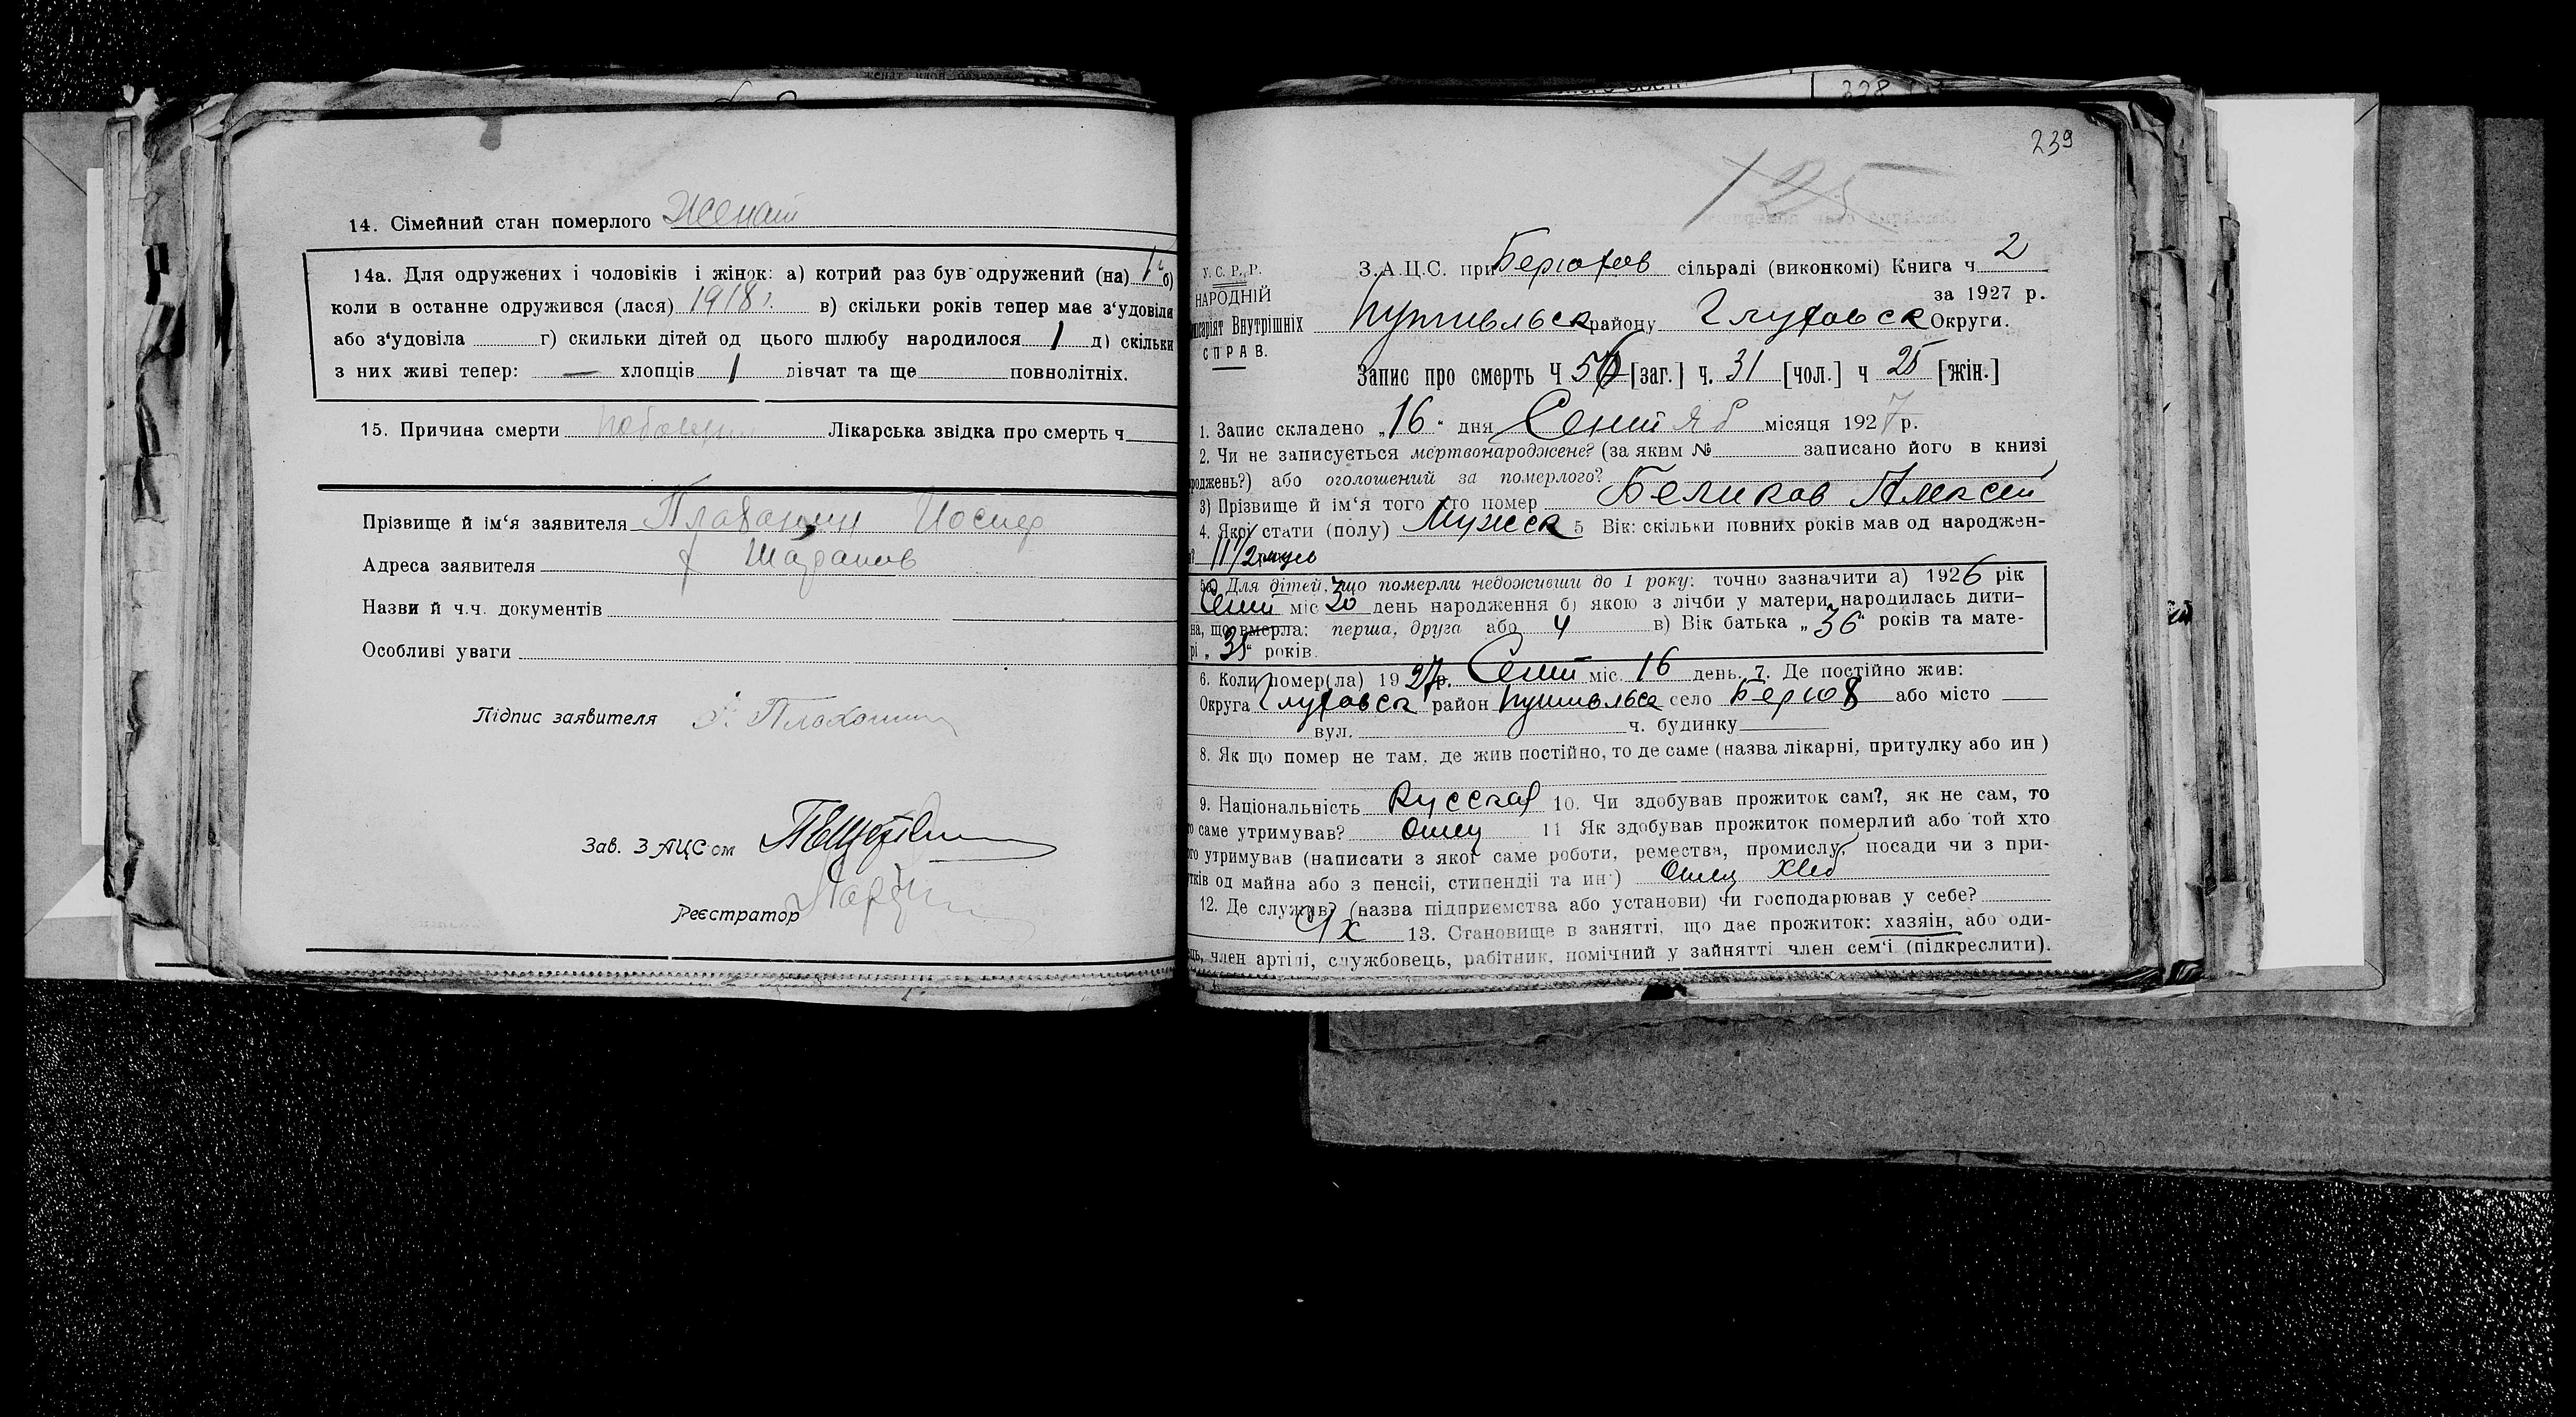 14. Сімейний стан померлого Женат
14а. Для одружених і чоловіків і жінок: а) котрий раз був одружений (на) 1 б)
коли в останне одружився (лася) 1918 г. в) скільки років тепер має з'удовіла
або з'удовіла г) скильки дітей од цього шлюбу народилося 1 д) скільки
з них живі тепер: — хлопців 1 дівчат та ще повнолітніх.
15. Причина смерти Лікарська звідка про смерть ч
Прізвище й ім'я заявителя Иосиф
Адреса заявителя
Назви й ч.ч. документів
Особливі уваги
Підпис заявителя
Зав. ЗАЦС'ом
Реєстратор
239
125
У. С. Р. Р.
НАРОДНІЙ
Внутрішніх
СПРАВ.
З.А.Ц.С. при Берюхов сільраді (виконкомі) Книга ч. 2
за 1927 р.
Путивльск району Глуховск Округи.
Запис про смерть Ч 56 [заг.] ч. 31 [чол.] ч 25 [жін.]
1. Запис складено „16“ дня Сентяб місяця 1927 р.
2. Чи не записується мертвонароджене? (за яким № записано його в книзі
роджень?) або оголошений за померлого?
3) Прізвище й ім'я того хто помер Беликов Алексей
4. Якої стати (полу) Мужск 5 Вік: скільки повних років мав од народжен-
11 1/2
5а) Для дітей, що померли недоживши до 1 року: точно зазначити а) 1926 рік
Сент міс 30 день народження б) якою з лічби у матери народилась дити-
на, що вмерла: перша, друга або 4 в) Вік батька „36“ років та мате-
рі „35“ років.
6. Коли помер(ла) 1927 р. Сент міс. 16 день. 7. Де постійно жив:
Округа Глуховск район Путивльск село Берюх або місто
вул. ч. будинку
8. Як що помер не там, де жив постійно, то де саме (назва лікарні, притулку або ин)
9. Національність Русская 10. Чи здобував прожиток сам?, як не сам, то
саме утримував? Отец 11 Як здобував прожиток померлий або той хто
го утримував (написати з якої саме роботи, ремества, промислу, посади чи з при-
тків од майна або з пенсії, стипендії та ин.) Отец Хлеб
12. Де служив? (назва підприємства або установи) чи господарював у себе?
С/Х 13. Становище в занятті, що дає прожиток: хазяїн, або оди-
ць, член артілі, службовець, рабітник, помічний у зайнятті член сем'ї (підкреслити).